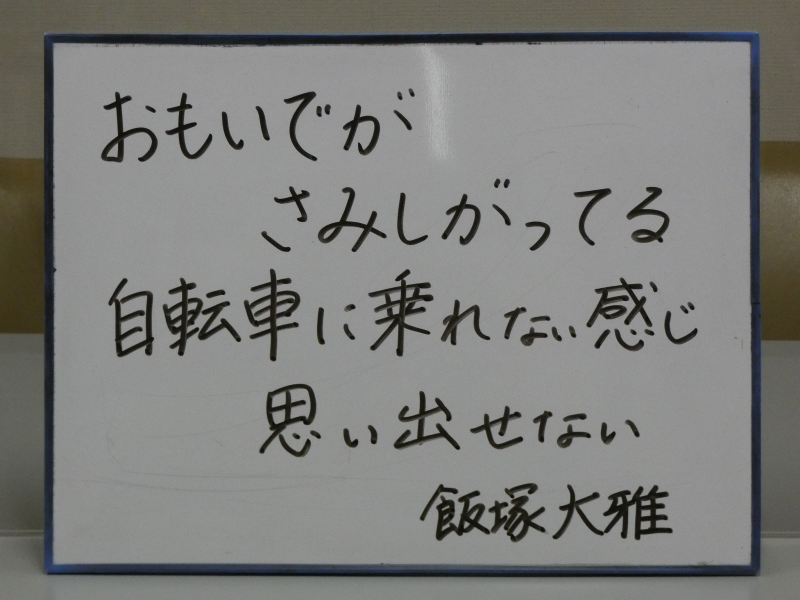 おもいでが
さみしがってる
自転車に乗れない感じ
思い出せない
飯塚大雅